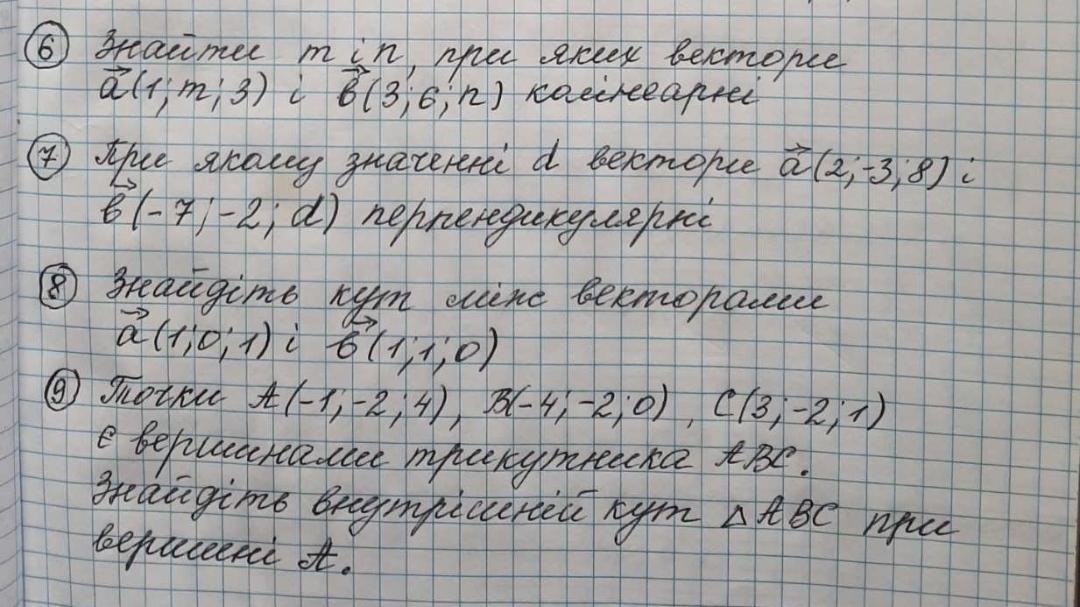 ⑥ Знайти m і n, при яких вектори
a⃗(1; m; 3) і b⃗(3; 6; n) колінеарні
⑦ При якому значенні d вектори a⃗(2; -3; 8) і
b⃗(-7; -2; d) перпендикулярні
⑧ Знайдіть кут між векторами
a⃗(1; 0; 1) і b⃗(1; 1; 0)
⑨ Точки A(-1; -2; 4), B(-4; -2; 0), C(3; -2; 1)
є вершинами трикутника ABC.
Знайдіть внутрішній кут △ABC при
вершині A.